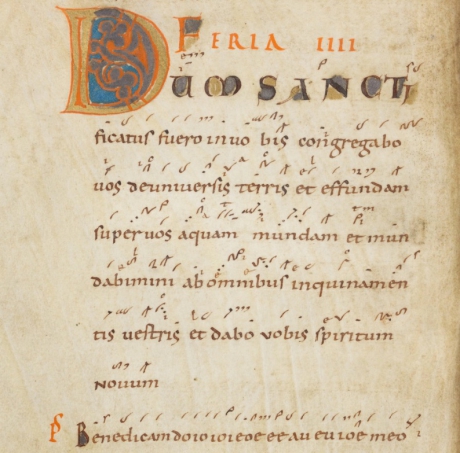 FERIA IIII
DUM SANCTI
ficatus fuero in uo bis congregabo
uos deuniuersis terris et effundam
super uos aquam mundam et mun
dabimini ab omnibus inquinamen
tis uestris et dabo uobis spiritum
nouum
Benedicam do